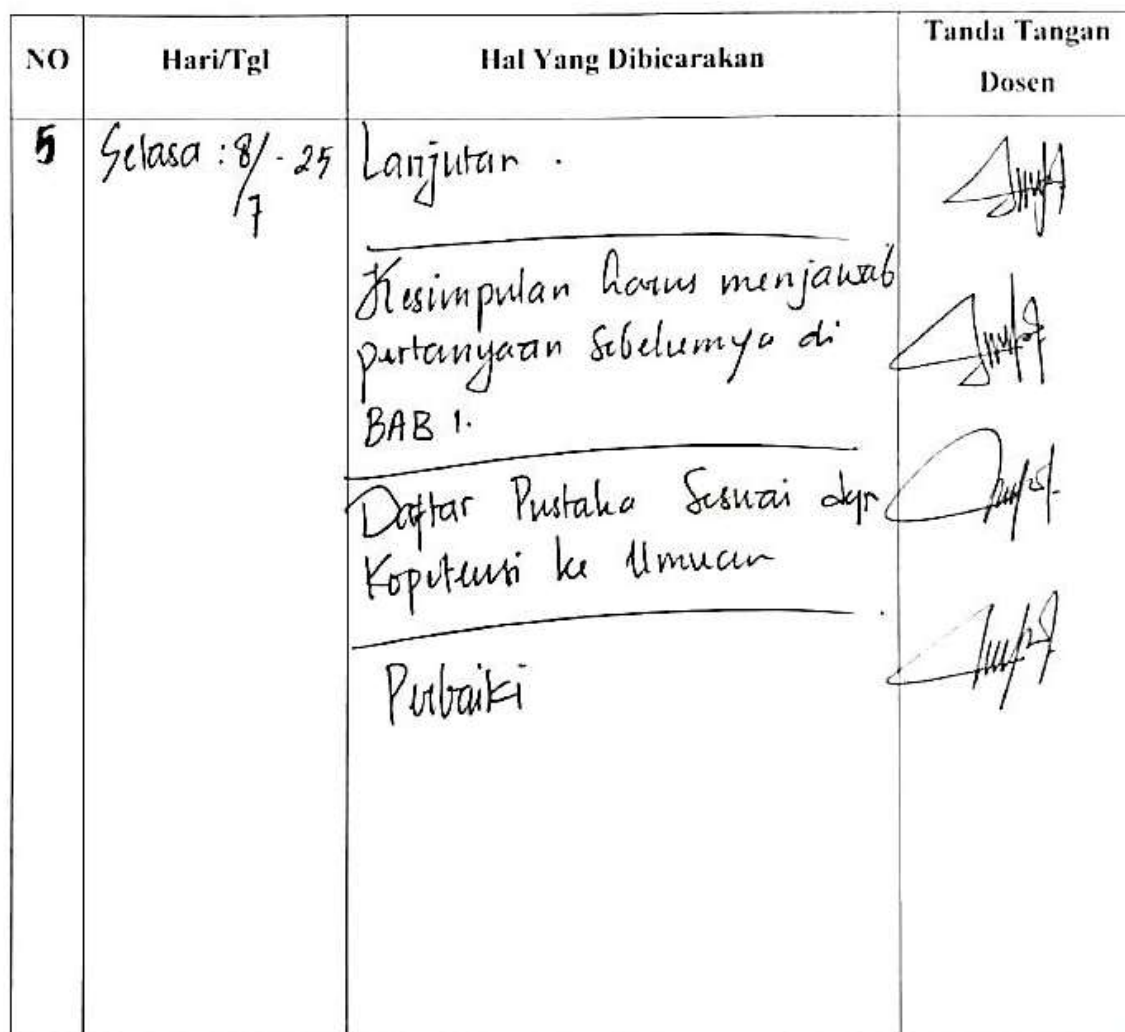 NO Hari/Tgl Hal Yang Dibicarakan Tanda Tangan Dosen
5 Selasa : 8/7 - 25 Lanjutan .
Kesimpulan harus menjawab
pertanyaan sebelumnya di
BAB 1.
Daftar Pustaka Sesuai dgn
Kopetensi ke Ilmuan
Perbaiki